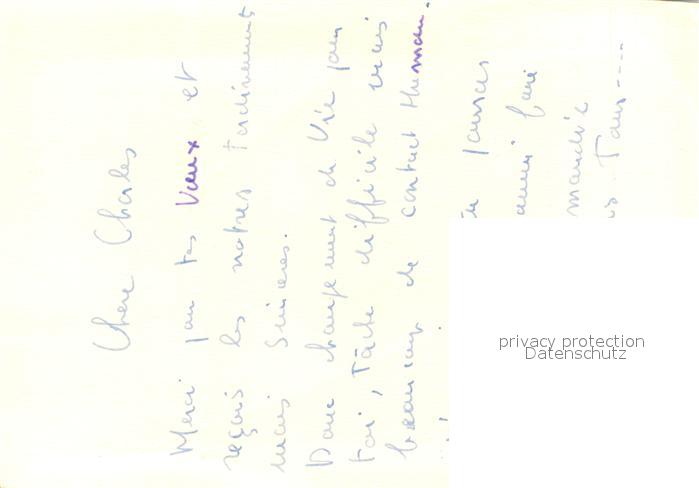 Cher Charles
Merci pour tes Vœux et
reçois les notres tardivement
mais sincères.
Donc changement de Vie pour
toi, Tâche difficile mais
beaucoup de contact Humain.
Tu
privacy protection
Datenschutz